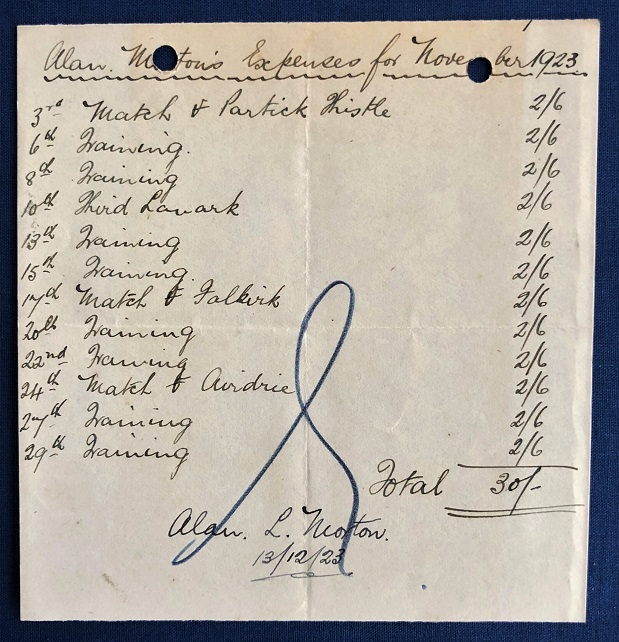 Alan. Morton's Expenses for November 1923
3rd Match v Partick Thistle 2/6
6th Training. 2/6
8th Training 2/6
10th Third Lanark 2/6
13th Training 2/6
15th Training. 2/6
17th Match v Falkirk 2/6
20th Training 2/6
22nd Training 2/6
24th Match v Airdrie 2/6
27th Training 2/6
29th Training 2/6
Total 30/-
Alan. L. Morton.
13/12/23